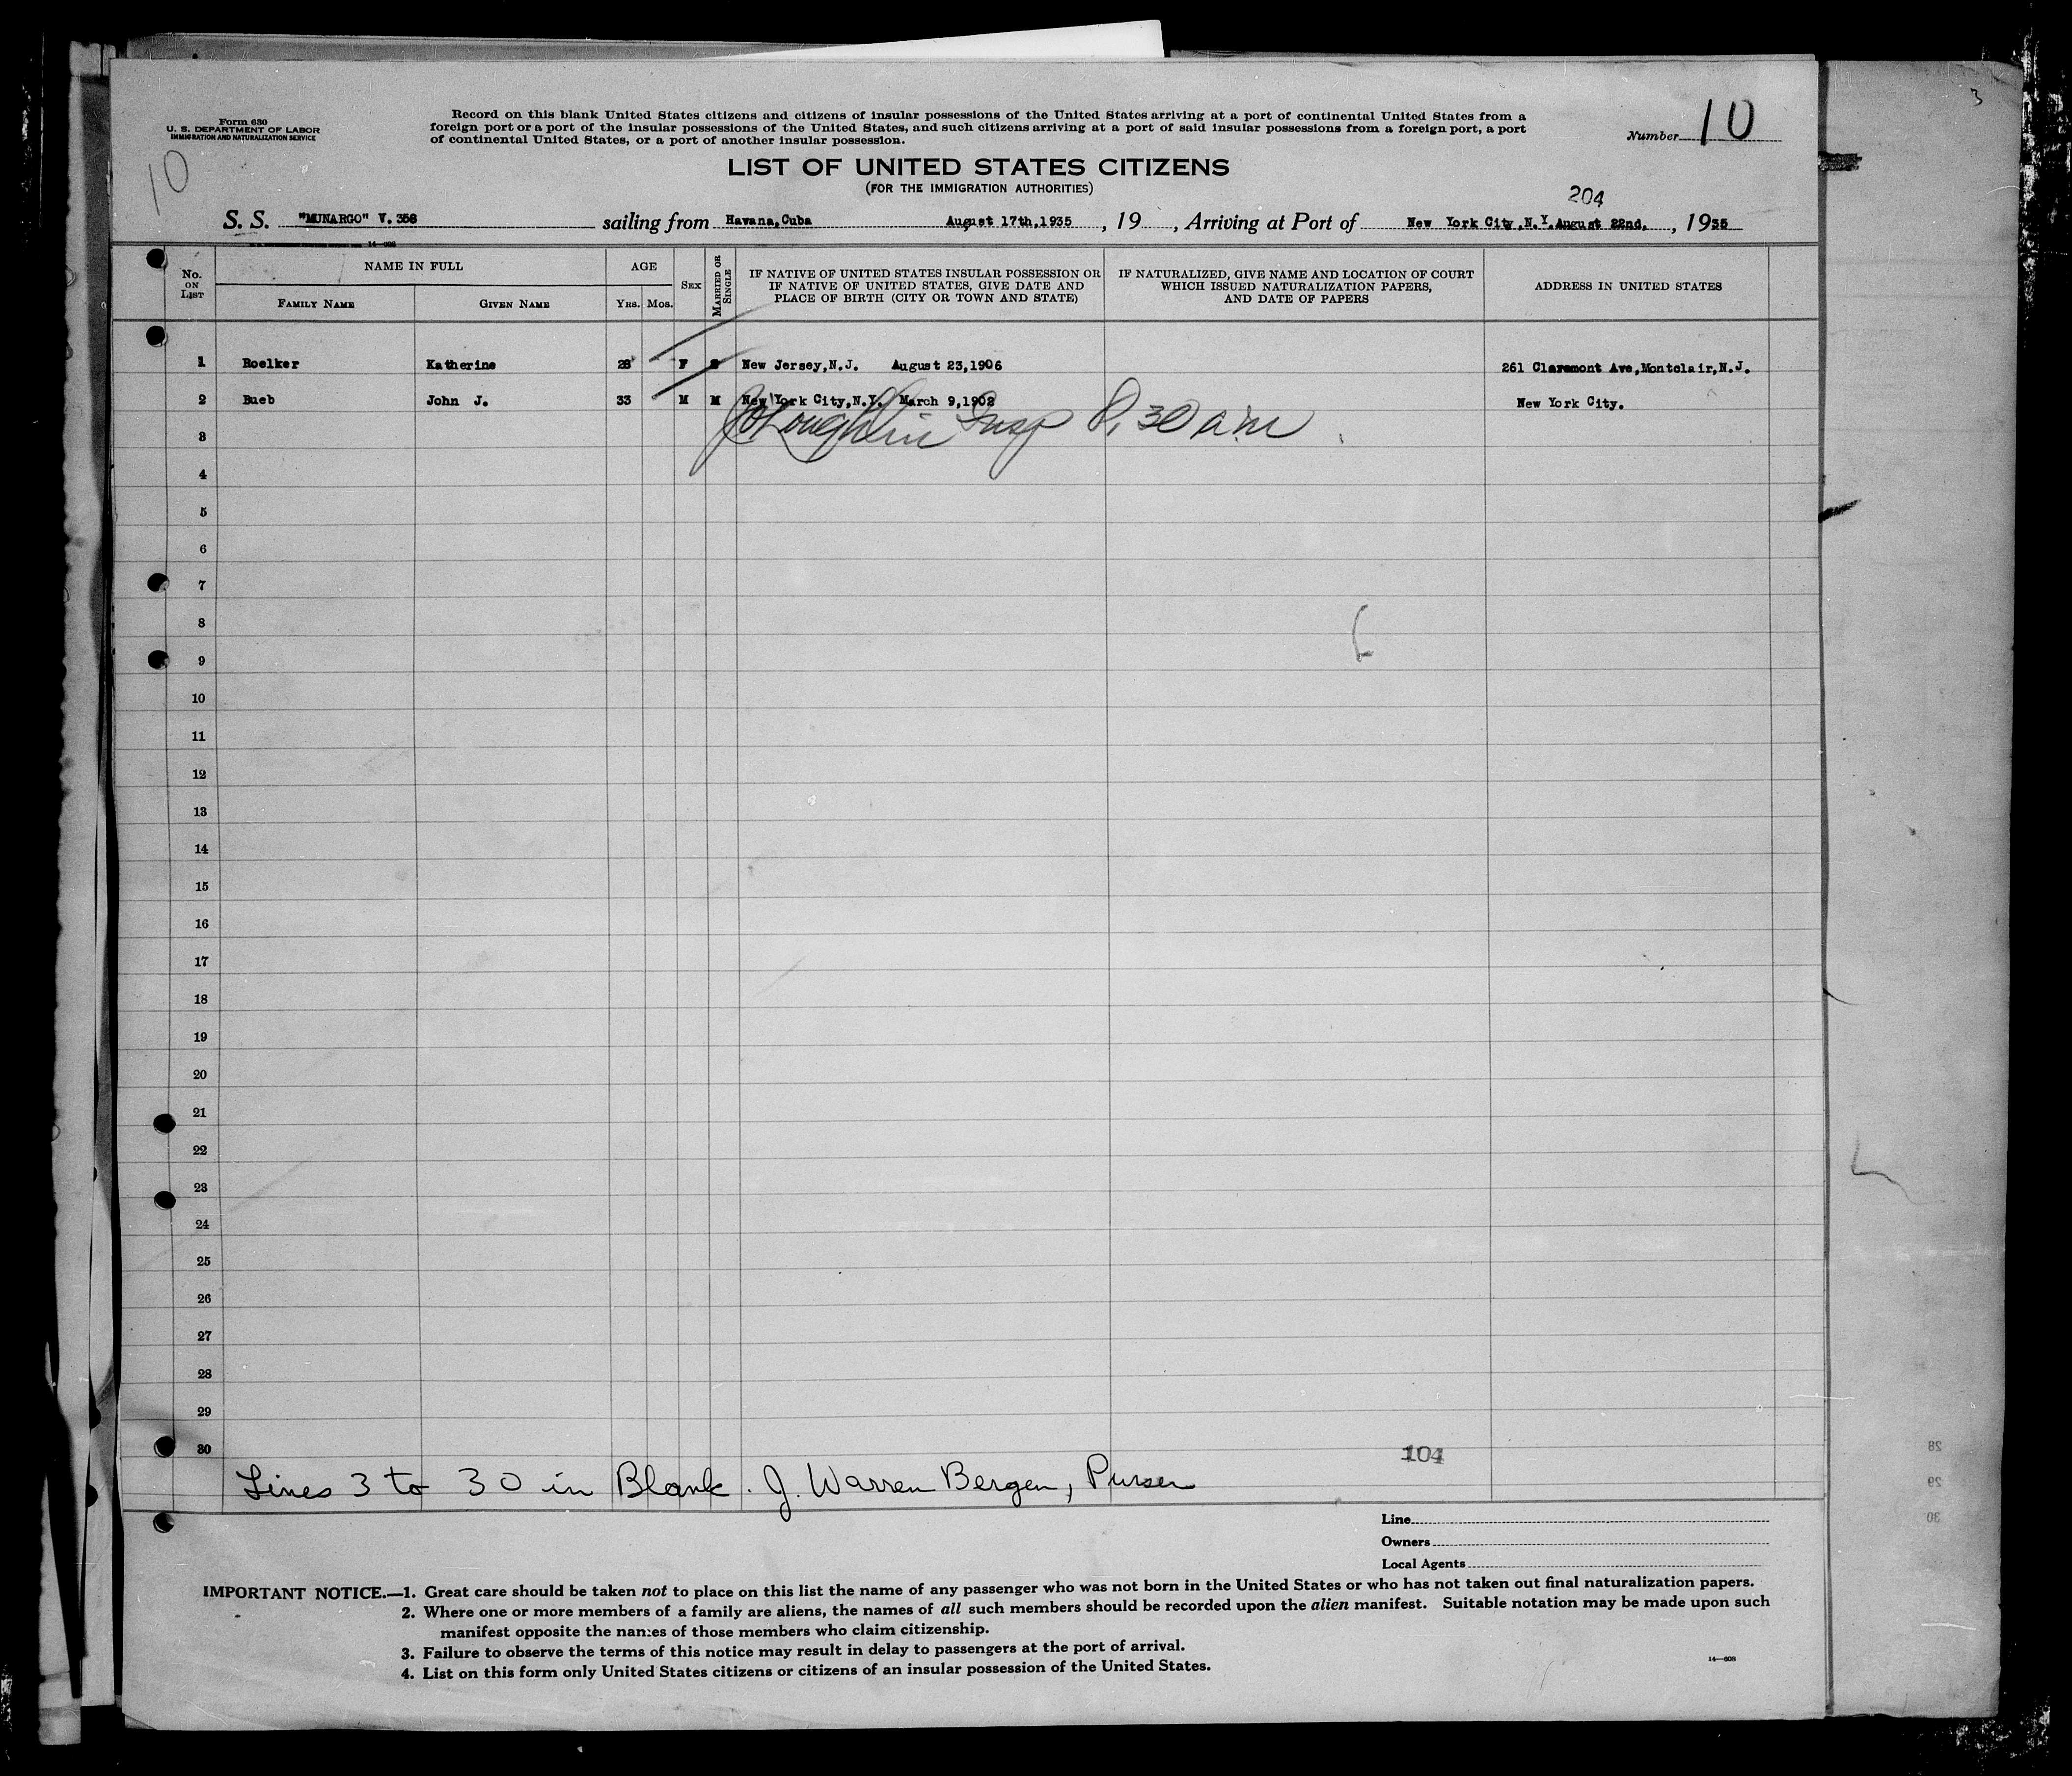 Form 630
U. S. DEPARTMENT OF LABOR
IMMIGRATION AND NATURALIZATION SERVICE
10
Record on this blank United States citizens and citizens of insular possessions of the United States arriving at a port of continental United States from a
foreign port or a port of the insular possessions of the United States, and such citizens arriving at a port of said insular possessions from a foreign port, a port
of continental United States, or a port of another insular possession.
Number 10
3
LIST OF UNITED STATES CITIZENS
(FOR THE IMMIGRATION AUTHORITIES)
204
S. S. "MUNARGO" V. 358 sailing from Havana,Cuba August 17th,1935, 19 , Arriving at Port of New York City,N.Y.August 22nd. , 1935
14-608
No. ON LIST NAME IN FULL AGE SEX MARRIED OR SINGLE IF NATIVE OF UNITED STATES INSULAR POSSESSION OR IF NATIVE OF UNITED STATES, GIVE DATE AND PLACE OF BIRTH (CITY OR TOWN AND STATE) IF NATURALIZED, GIVE NAME AND LOCATION OF COURT WHICH ISSUED NATURALIZATION PAPERS, AND DATE OF PAPERS ADDRESS IN UNITED STATES
FAMILY NAME GIVEN NAME YRS. MOS.
1 Roelker Katherine 28 F S New Jersey,N.J. August 23,1906 261 Claremont Ave,Montclair,N.J.
2 Bueb John J. 33 M M New York City,N.Y. March 9,1902 New York City.
Insp 8,30 am
3
4
5
6
7
8
9
10
11
12
13
14
15
16
17
18
19
20
21
22
23
24
25
26
27
28
29
30
104
Lines 3 to 30 in Blank. J. Warren Bergen, Purser
28
29
30
Line
Owners
Local Agents
IMPORTANT NOTICE.—1. Great care should be taken not to place on this list the name of any passenger who was not born in the United States or who has not taken out final naturalization papers.
2. Where one or more members of a family are aliens, the names of all such members should be recorded upon the alien manifest. Suitable notation may be made upon such
manifest opposite the names of those members who claim citizenship.
3. Failure to observe the terms of this notice may result in delay to passengers at the port of arrival.
4. List on this form only United States citizens or citizens of an insular possession of the United States.
14—608